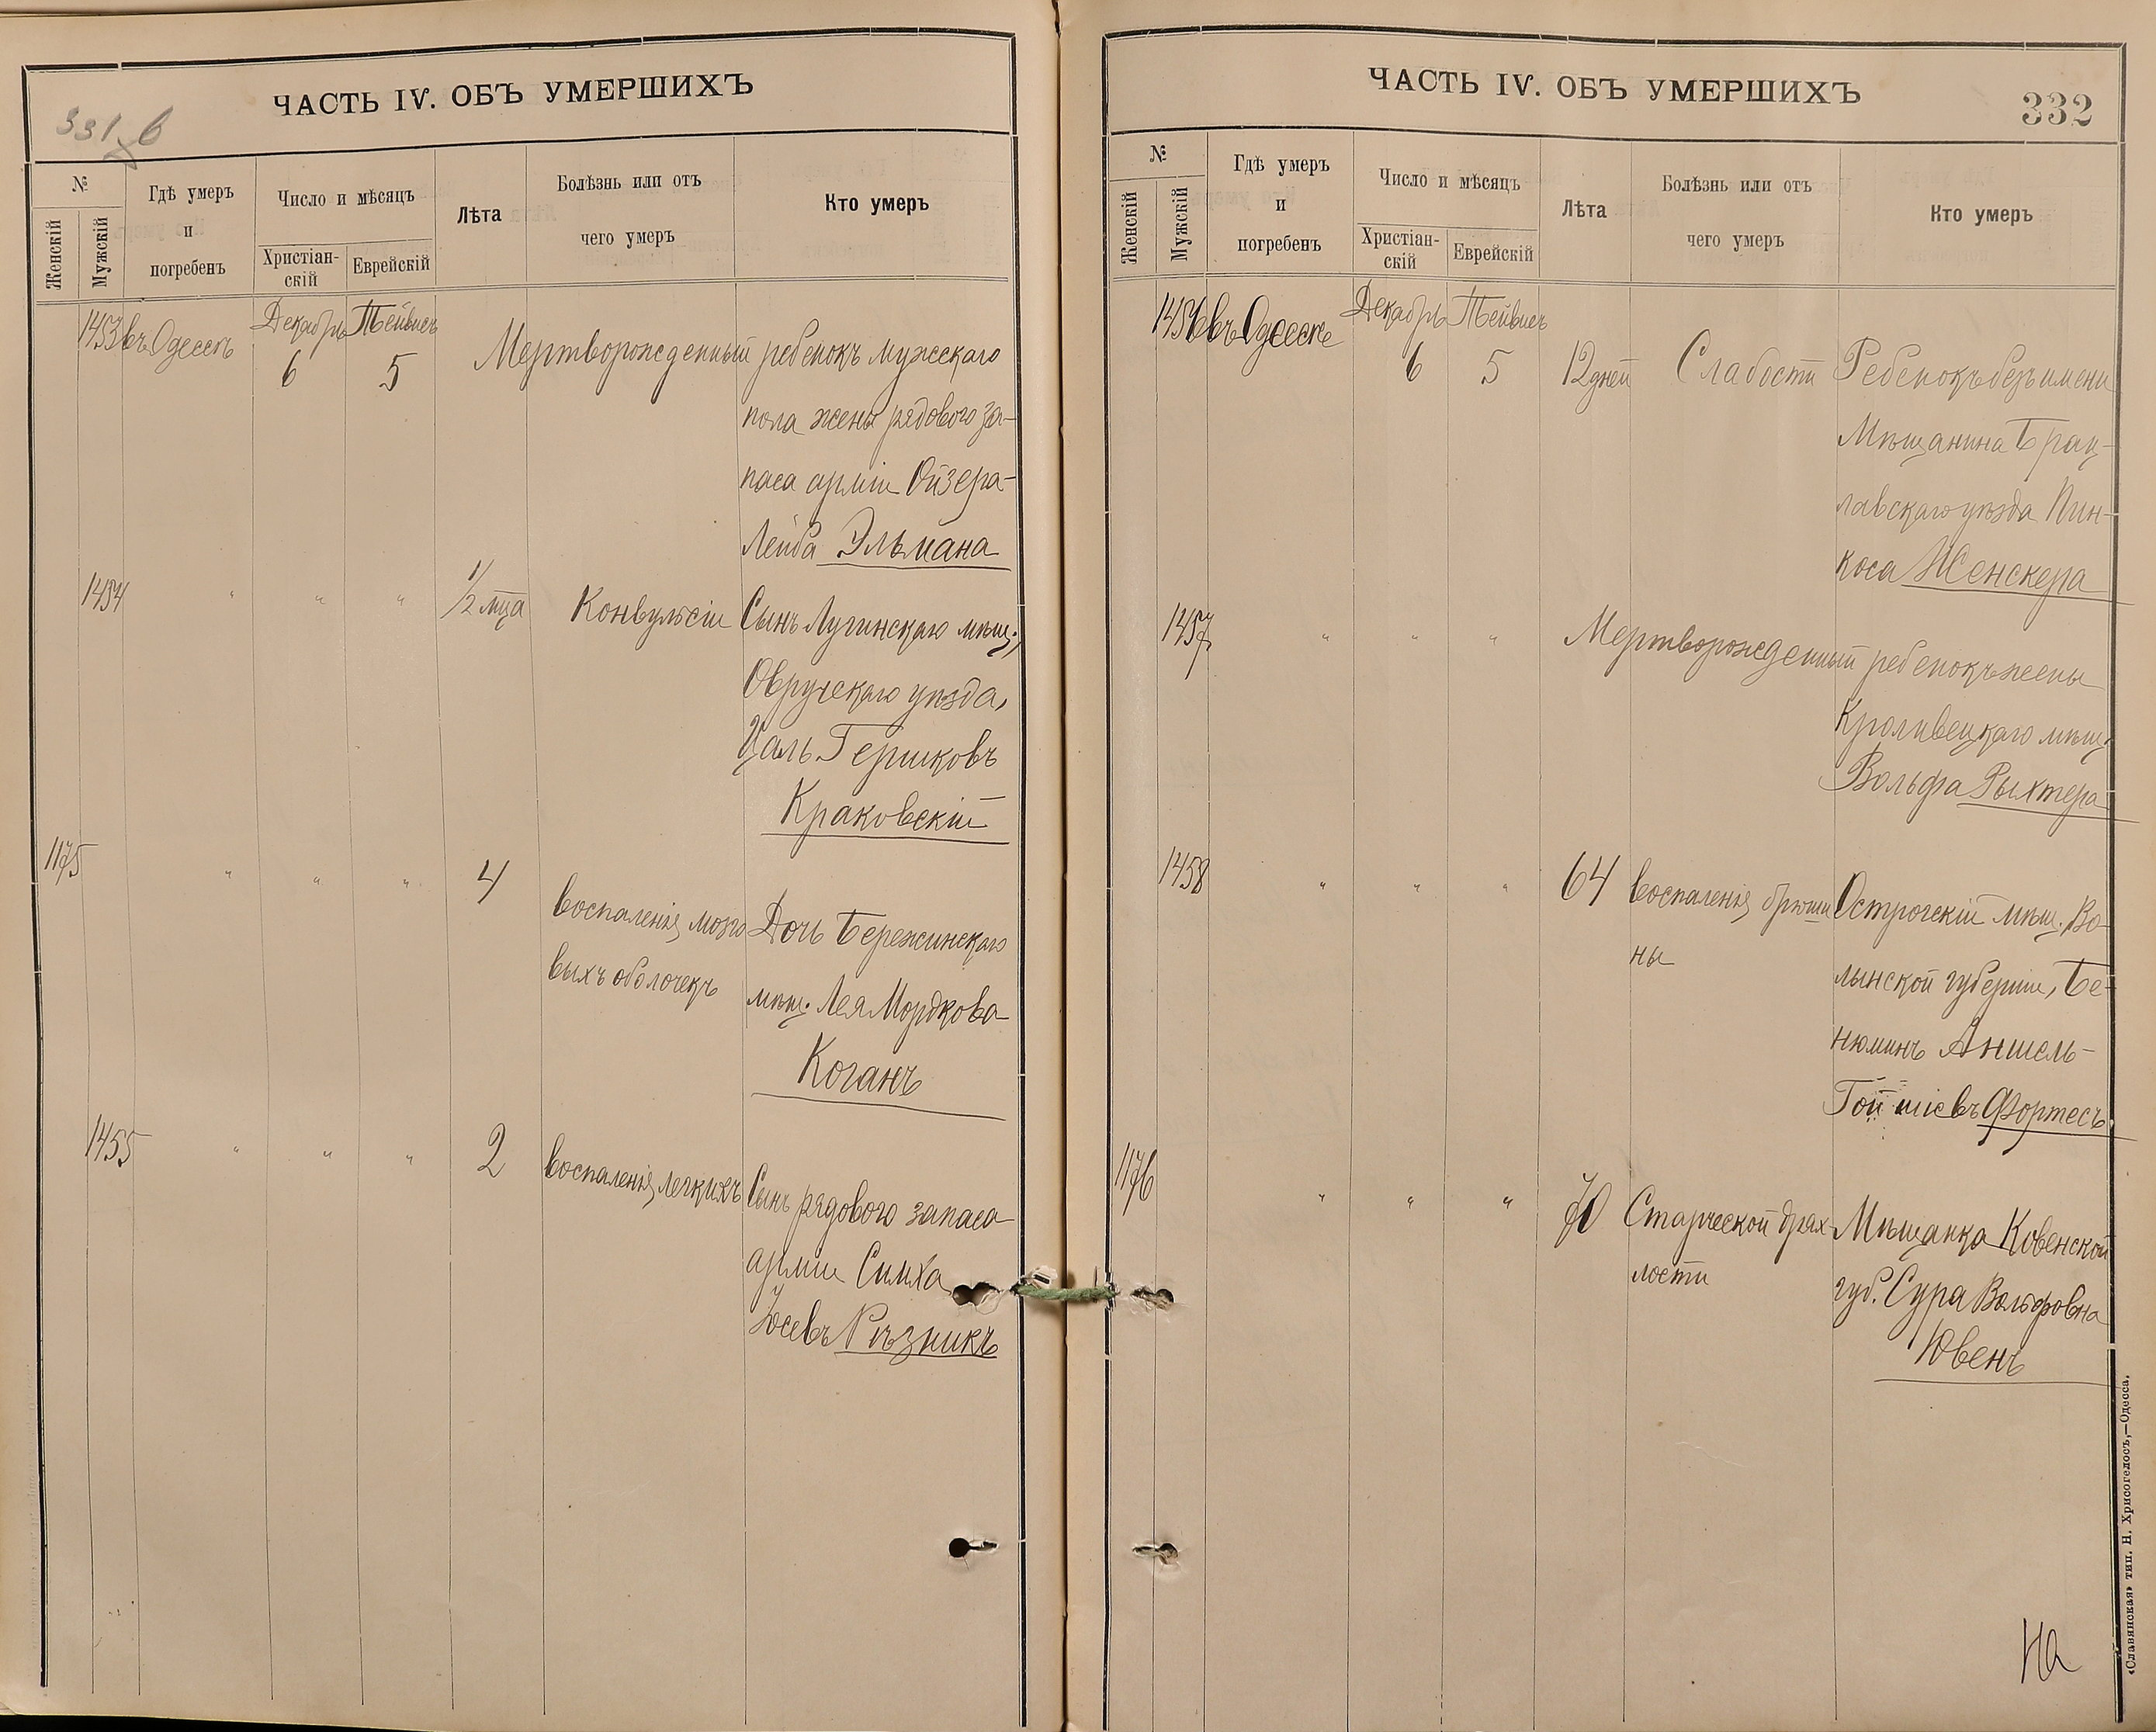 ЧАСТЬ IV. ОБЪ УМЕРШИХЪ
331 б
№
Женскій
Мужскій
Гдѣ умеръ
и
погребенъ
Число и мѣсяцъ
Христіан-
скій
Еврейскій
Лѣта
Болѣзнь или отъ
чего умеръ
Кто умеръ
1453 въ Одессѣ Декабрь Тейвисъ
6 5 Мертворожденный ребенокъ мужскаго
пола жены рядового за-
паса арміи Ойзера-
Лейба Эльмана
1454 " " " 1/2 м-ца Конвульсіи Сынъ Лугинскаго мѣщ.,
Овручскаго уѣзда,
Цаль Гершковъ
Краковскій
1175 " " " 4 воспаленія мозго Дочь Бережинскаго
выхъ оболочекъ мѣщ. Лея Мордкова
Коганъ
1455 " " " 2 воспаленія легкихъ Сынъ рядового запаса
арміи Симха
Іосевъ Рѣзникъ
ЧАСТЬ IV. ОБЪ УМЕРШИХЪ
332
№
Женскій
Мужскій
Гдѣ умеръ
и
погребенъ
Число и мѣсяцъ
Христіан-
скій
Еврейскій
Лѣта
Болѣзнь или отъ
чего умеръ
Кто умеръ
1456 въ Одессѣ Декабрь Тейвисъ
6 5 12 дней Слабости Ребенокъ безъ имени
Мѣщанина Брац-
лавскаго уѣзда Пин-
коса Женскера
1457 " " " Мертворожденный ребенокъ жены
Кроливецкаго мѣщ.
Вольфа Рыхтера
1458 " " " 64 воспаленія брюши Острогскій мѣщ. Во-
ны лынской губерніи, Бе-
нюминъ Аншель-
Гойшіевъ Фортесъ
1176 " " " 70 Старческой дрях- Мѣщанка Ковенской
лости губ. Сура Вольфовна
Ювенъ
На
«Славянская» тип. Н. Хрисогелосъ,—Одесса.